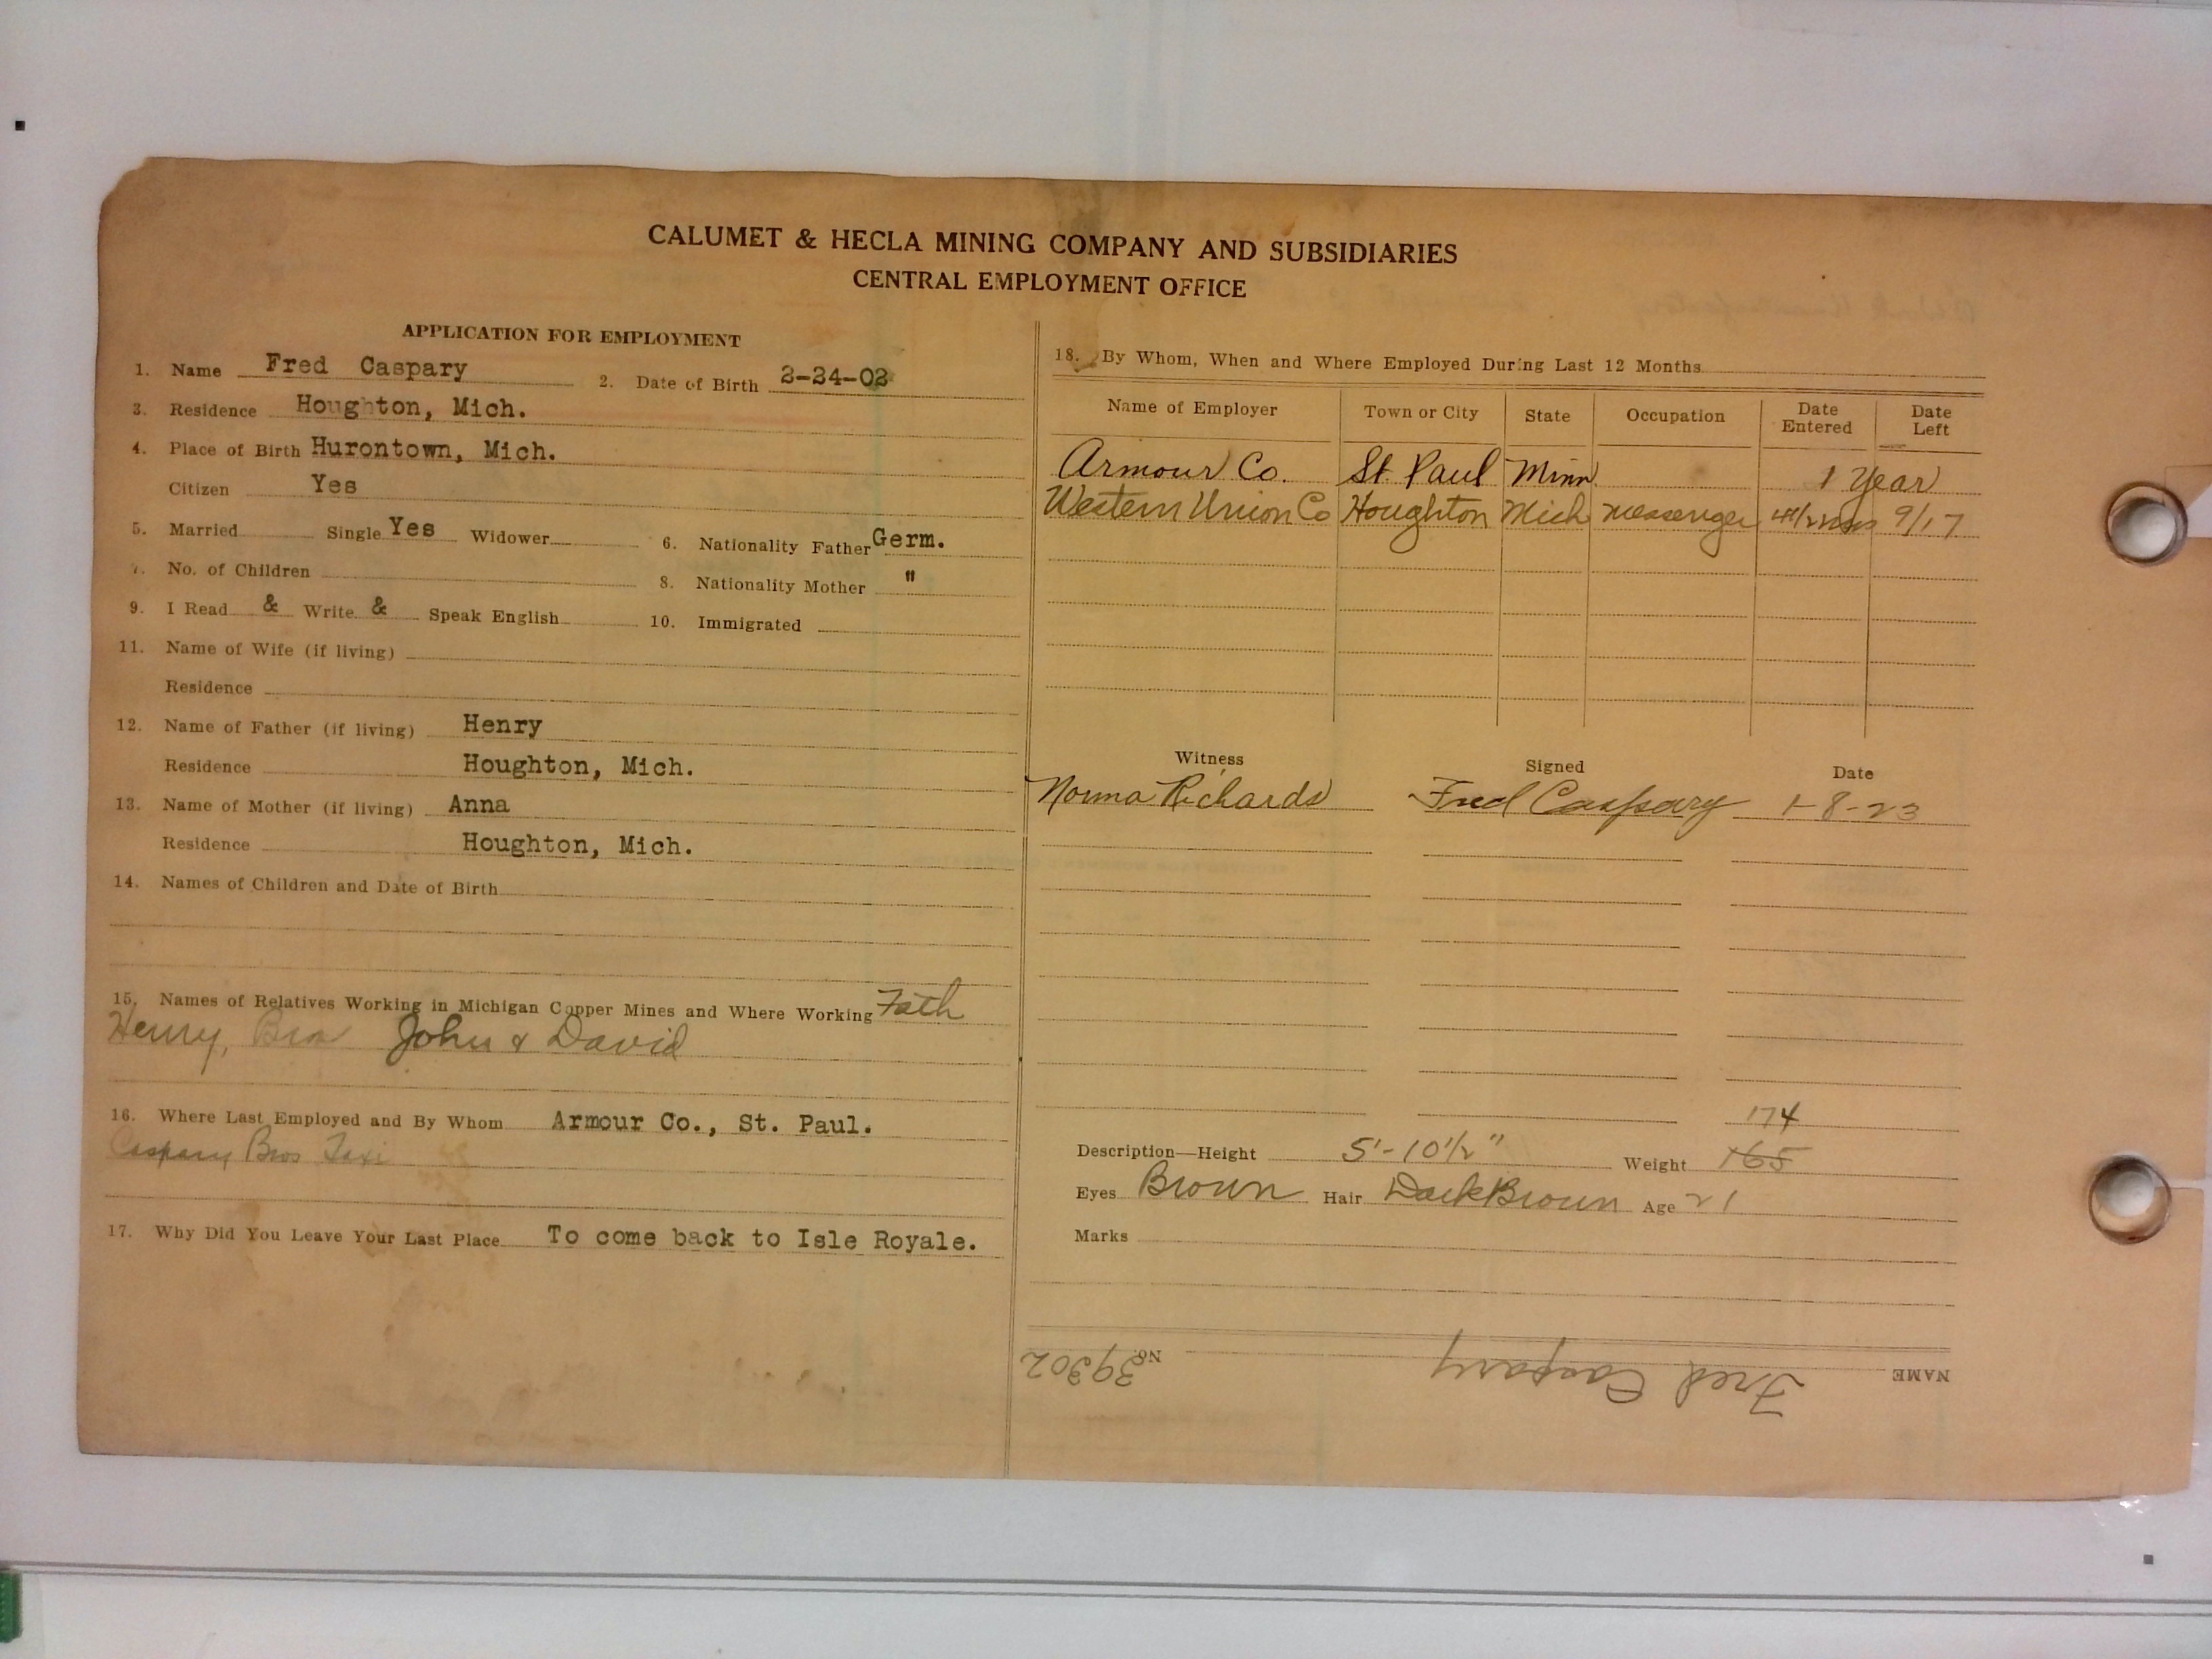 CALUMET & HECLA MINING COMPANY AND SUBSIDIARIES
CENTRAL EMPLOYMENT OFFICE
APPLICATION FOR EMPLOYMENT
1. Name Fred Caspary 2. Date of Birth
3. Residence Houghton, Mich.
4. Place of Birth Hurontown, Mich.
Citizen Yes
5. Married Single Yes Widower 6. Nationality Father Germ.
7. No. of Children 8. Nationality Mother "
9. I Read & Write & Speak English 10. Immigrated
11. Name of Wife (if living)
Residence
12. Name of Father (if living) Henry
Residence Houghton, Mich.
13. Name of Mother (if living) Anna
Residence Houghton, Mich.
14. Names of Children and Date of Birth
15. Names of Relatives Working in Michigan Copper Mines and Where Working Fath
Henry, Bro John & David
16. Where Last Employed and By Whom Armour Co., St. Paul.
Caspary Bros Taxi
17. Why Did You Leave Your Last Place To come back to Isle Royale.
18. By Whom, When and Where Employed During Last 12 Months
Name of Employer Town or City State Occupation Date Entered Date Left
Armour Co. St. Paul Minn. 1 Year
Western Union Co Houghton Mich messenger 9/17
Witness Signed Date
Norma Richards Fred Caspary 1-8-23
174
Description—Height 5'-10 1/2" Weight 165
Eyes Brown Hair Dark Brown Age 21
Marks
NAME Fred Caspary No. 39302